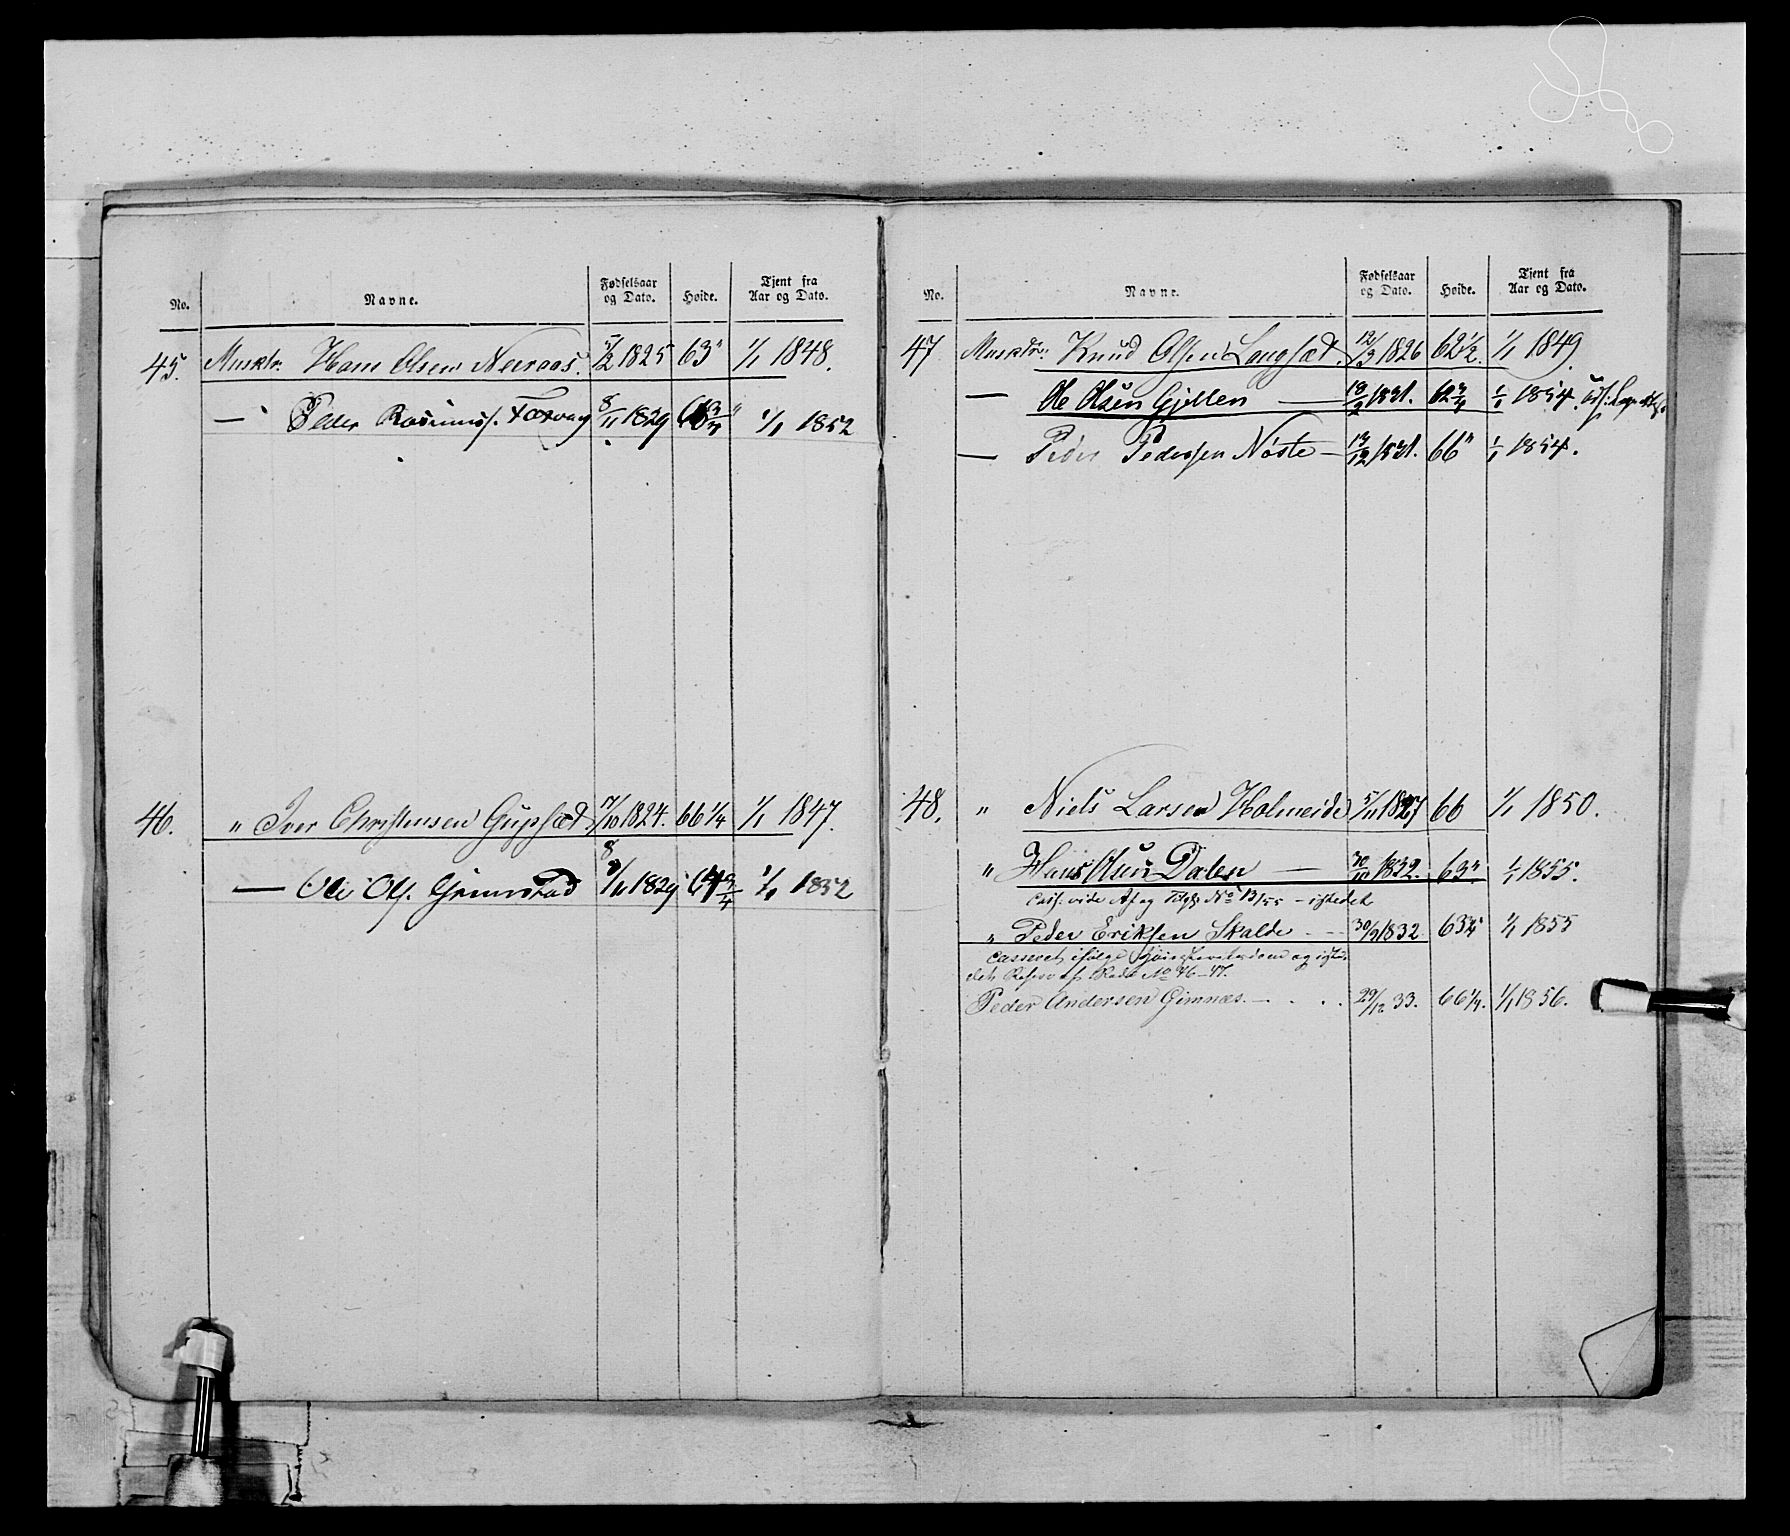 No. Navne. Fødselsaar og Dato. Høide. Tjent fra Aar og Dato.
45. Musktr. Hans Olsen Neeraas. 5/2 1825 63" 1/1 1848.
— Peder Rasmuss. Farvag 8/11 1829 1/1 1852
46. " Iver Christensen Gupsæt 17/10 1824. 66 1/4 1/1 1847.
— Ole Ols. Grimstad 8/11 1829 64 3/4 1/1 1852
No. Navne. Fødselsaar og Dato. Høide. Tjent fra Aar og Dato.
47 Musktr. Knud Olsen Langsæt. 12/3 1826 62 1/2. 1/1 1849.
— Ole Olsen Gjellen — 13/2 1831. 62 3/4 1/1 1854.
— Peder Pedersen Nøste — 13/12 1831. 66" 1/1 1854.
48. " Niels Larsen Holmeide 5/11 1827 66 1/1 1850.
" Hans Olsen Dalen — 30/10 1832. 63" 1/1 1855.
Cass. vide Af og Tilg. No 13/55 - istedet
" Peder Eriksen Skalde - - 30/9 1832 63 3/4" 1/1 1855
Casseret ifølge og iste-
det No 46-47.
Peder Andersen Gimnæs. — . . . 29/12 33. 66 1/4. 1/1 1856.